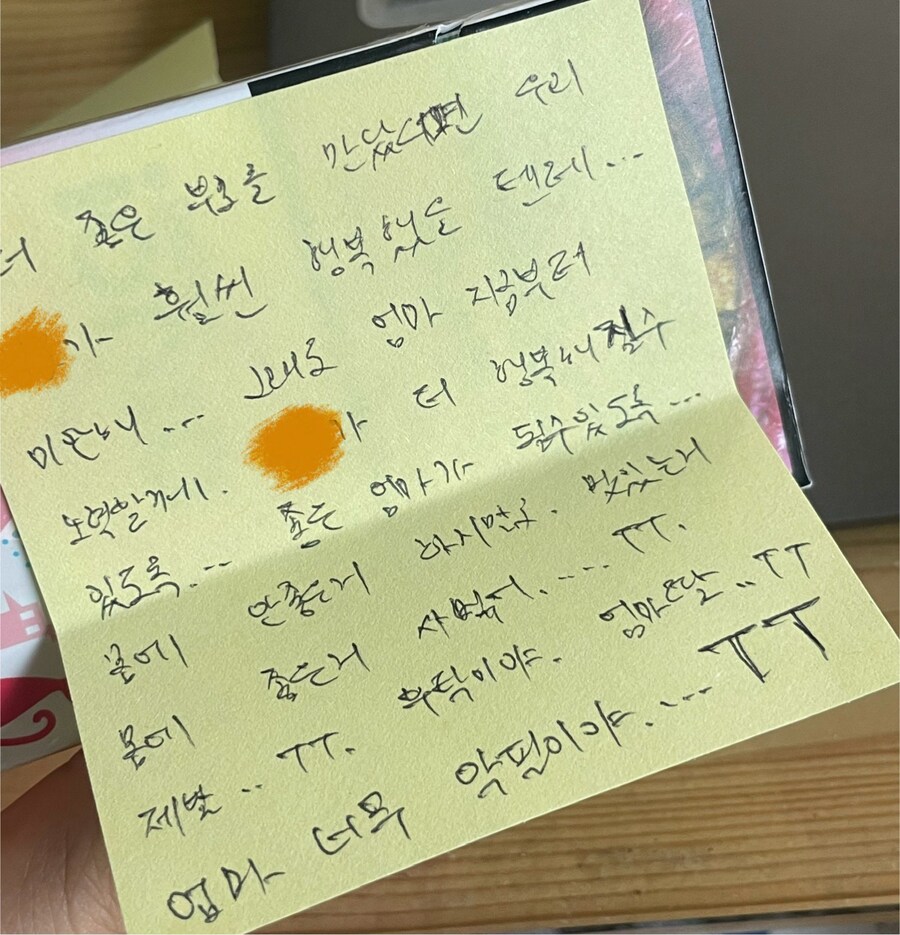 더 좋은 부모를 만났다면 우리
가 훨씬 행복했을 텐데...
미안해... 그래도 엄마 지금부터
노력할께!. 가 더 행복해질수
있도록... 좋은 엄마가 될수있도록...
몸에 안좋은거 하지말고. 맛있는거
몸에 좋은거 사먹어.... TT.
제발.. TT. 부탁이야. 엄마딸..TT
엄마 너무 악필이야....TT